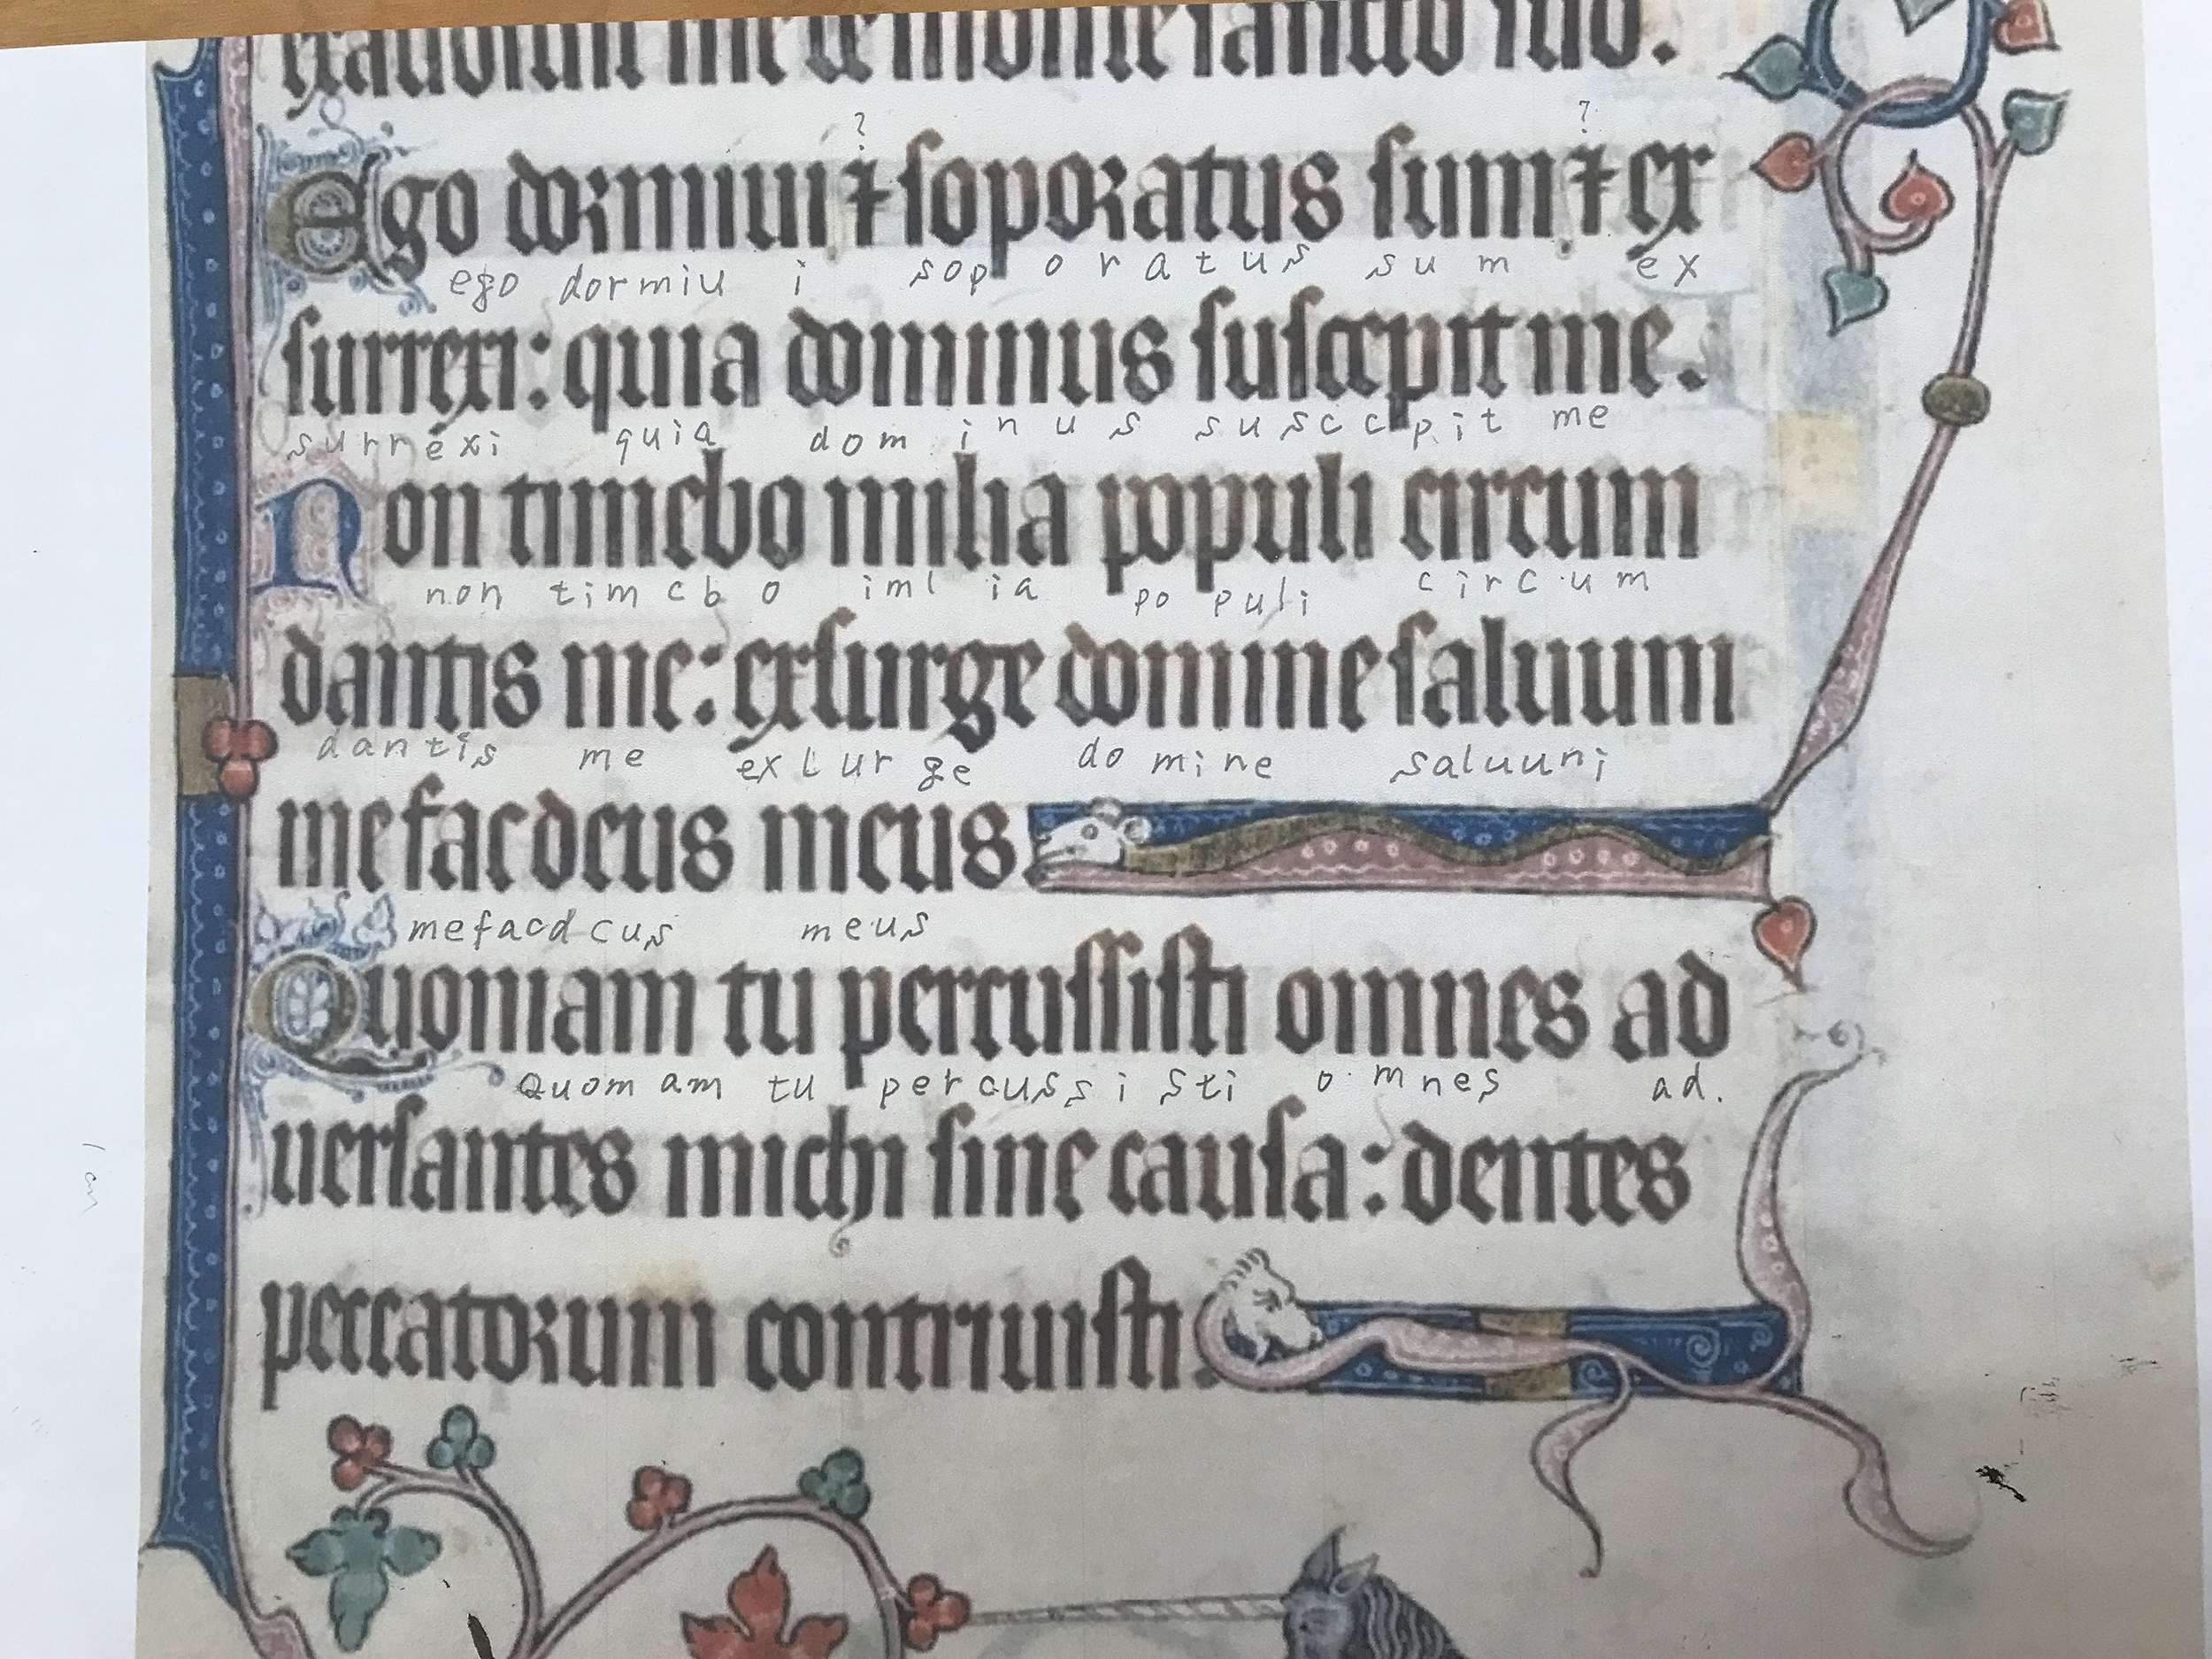 exaudiuit me de monte sancto suo.
? ?
Ego dormiui ⁊ soporatus sum ⁊ ex
ego dormiu i sop oratus sum ex
surrexi: quia dominus suscepit me.
surrexi quia dom inus susccpit me
Non timebo milia populi circum
non timcb o iml ia po puli circum
dantis me: exsurge domine saluum
dantis me exlur ge do mine saluuni
me fac deus meus.
mefacdcus meus
Quoniam tu percussisti omnes ad
Quom am tu percussisti omnes ad.
uersantes michi sine causa: dentes
peccatorum contriuisti.